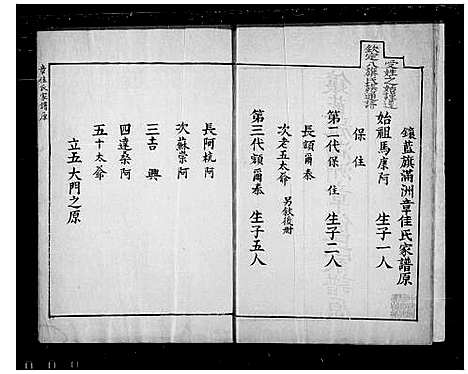 鑲藍旗滿洲章佳氏家譜原
受姓之始謹遵
欽定八旗氏族通譜
始祖馬康阿　生子一人
保住
第二代保　住　生子二人
長額爾泰
次老五太爺　另敘後對
第三代額爾泰　生子五人
長阿杭阿
次蘇崇阿
三吉　興
四達桑阿
五十太爺
立五大門之原
章佳氏家譜原